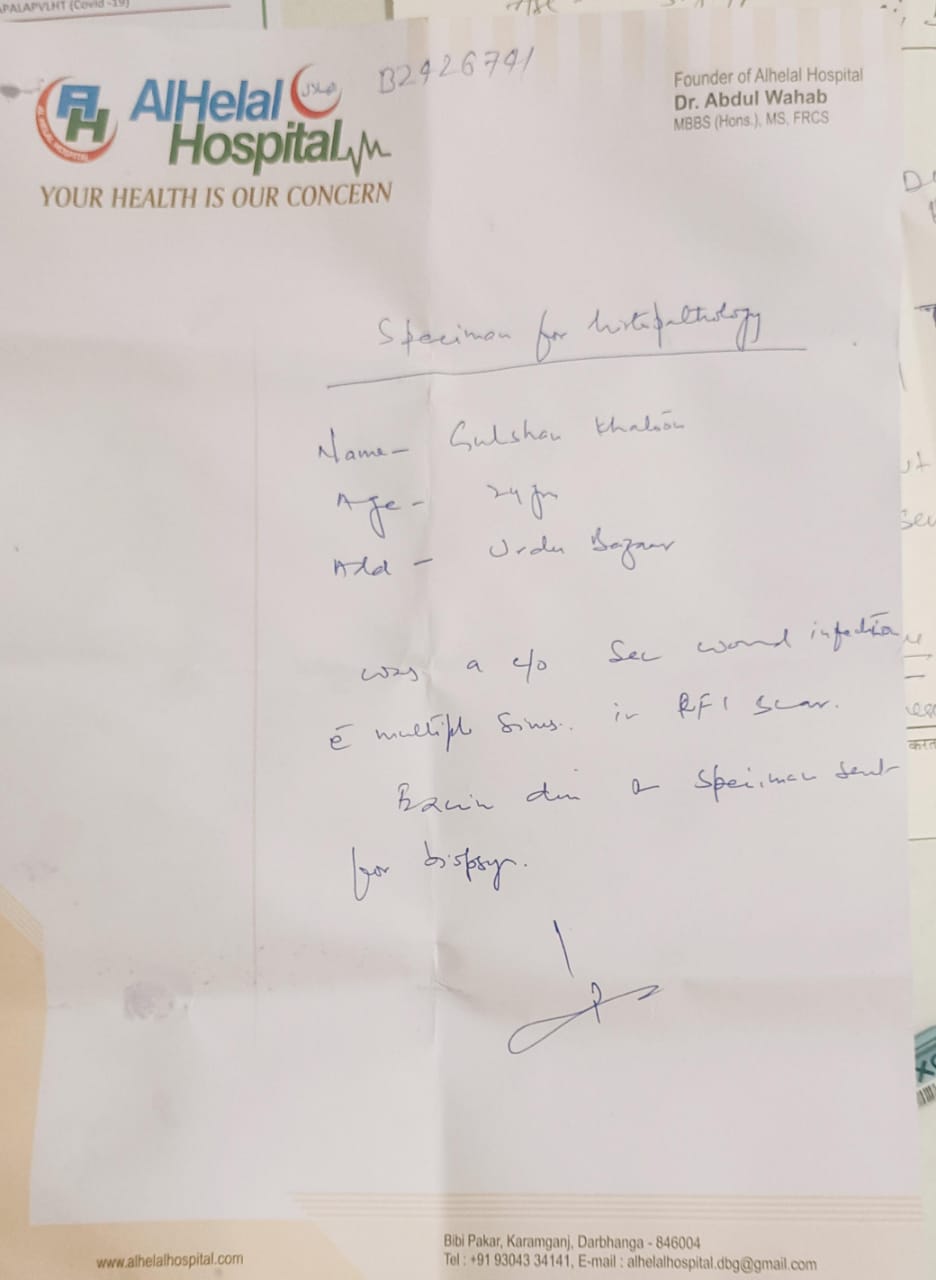 APALAPVLHT (Covid -19)
B2426741
AlHelal
Hospital
هلال
AH
ALHELAL HOSPITAL
YOUR HEALTH IS OUR CONCERN
Founder of Alhelal Hospital
Dr. Abdul Wahab
MBBS (Hons.), MS, FRCS
Speciman for histopathology
Name - Gulshan Khatoon
Age - 24 yrs
Add - Urdu Bazaar
was a c/o Sec wound infection
c̄ multiple Sinus. in RFI scar.
a Speciman sent
for biopsy.
करत
www.alhelalhospital.com
Bibi Pakar, Karamganj, Darbhanga - 846004
Tel : +91 93043 34141, E-mail : alhelalhospital.dbg@gmail.com